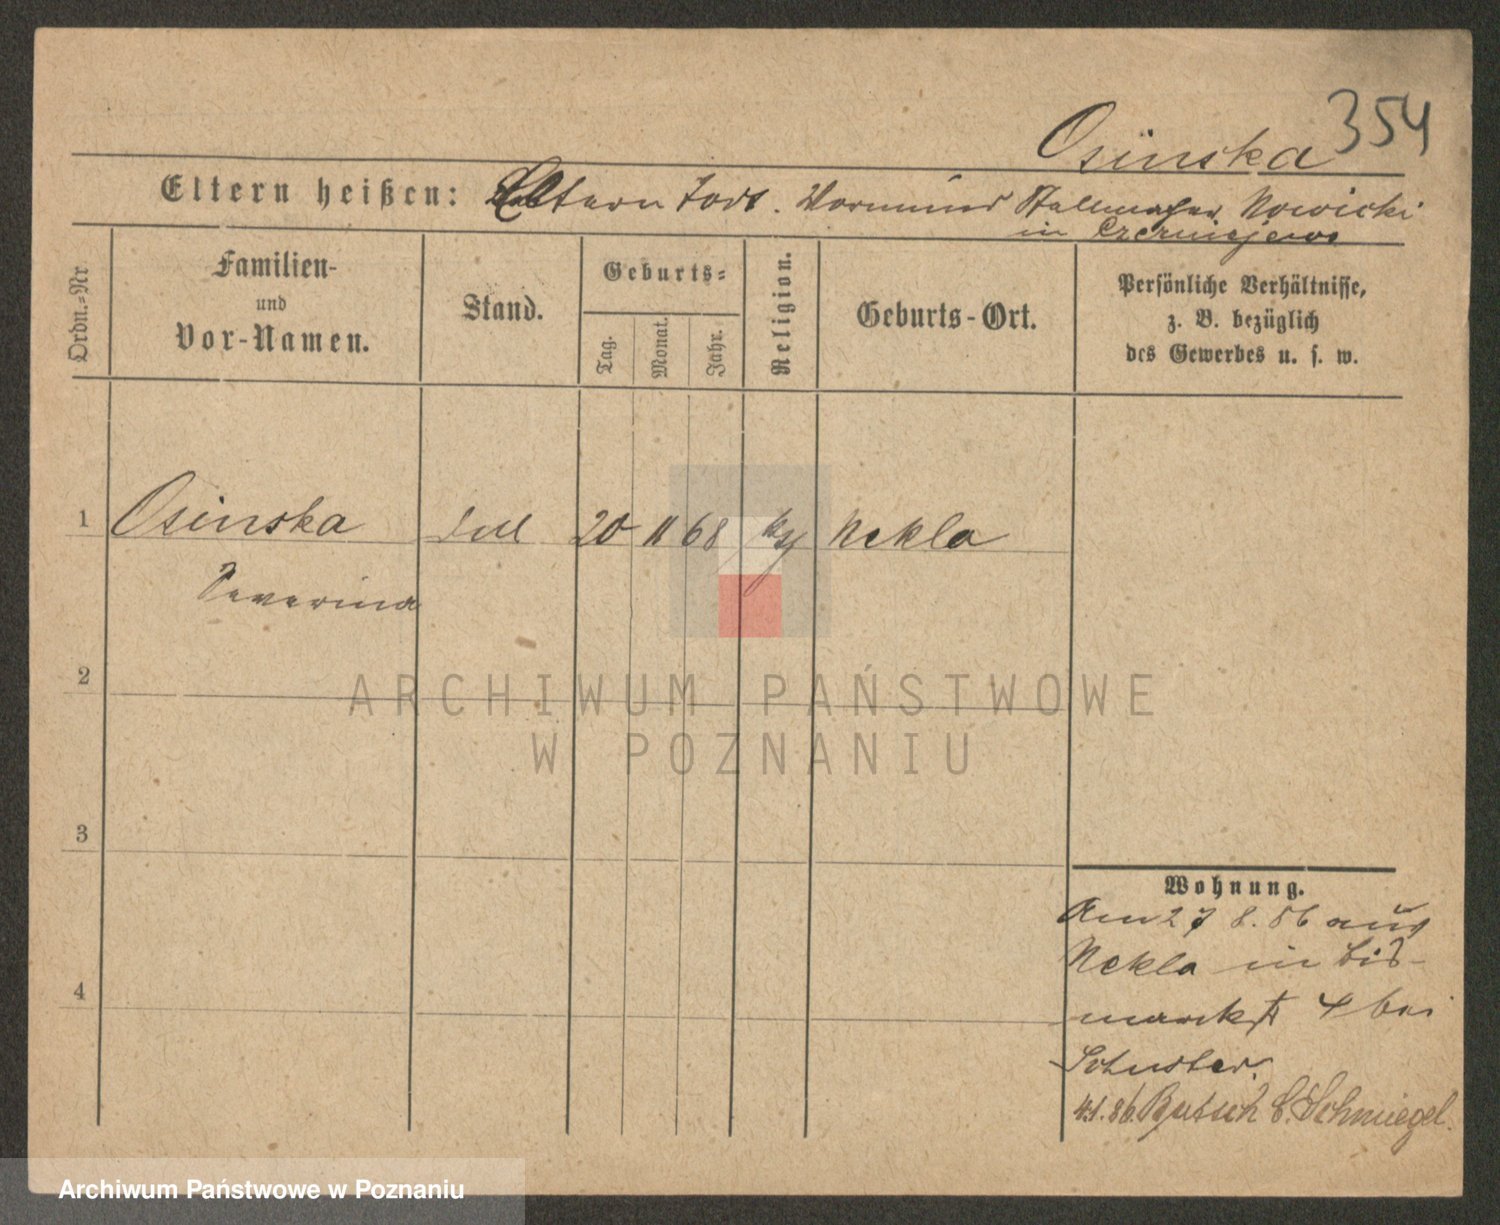 354
Osinska
Eltern heißen: Eltern todt. Vormund Stellmacher Nowicki
in Czerniejewo
Ordn.-Nr
Familien-
und
Vor-Namen.
Stand.
Geburts-
Tag.
Monat.
Jahr.
Religion.
Geburts-Ort.
Persönliche Verhältnisse,
z. B. bezüglich
des Gewerbes u. s. w.
1 Osinska led 20 11 68 Nekla
Severina
2
3
4
Wohnung.
Am 27 8. 86 aus
Nekla in Bis-
markstr 4 bei
Schuster.
86. C. Schmiegel.
ARCHIWUM PAŃSTWOWE
W POZNANIU
Archiwum Państwowe w Poznaniu